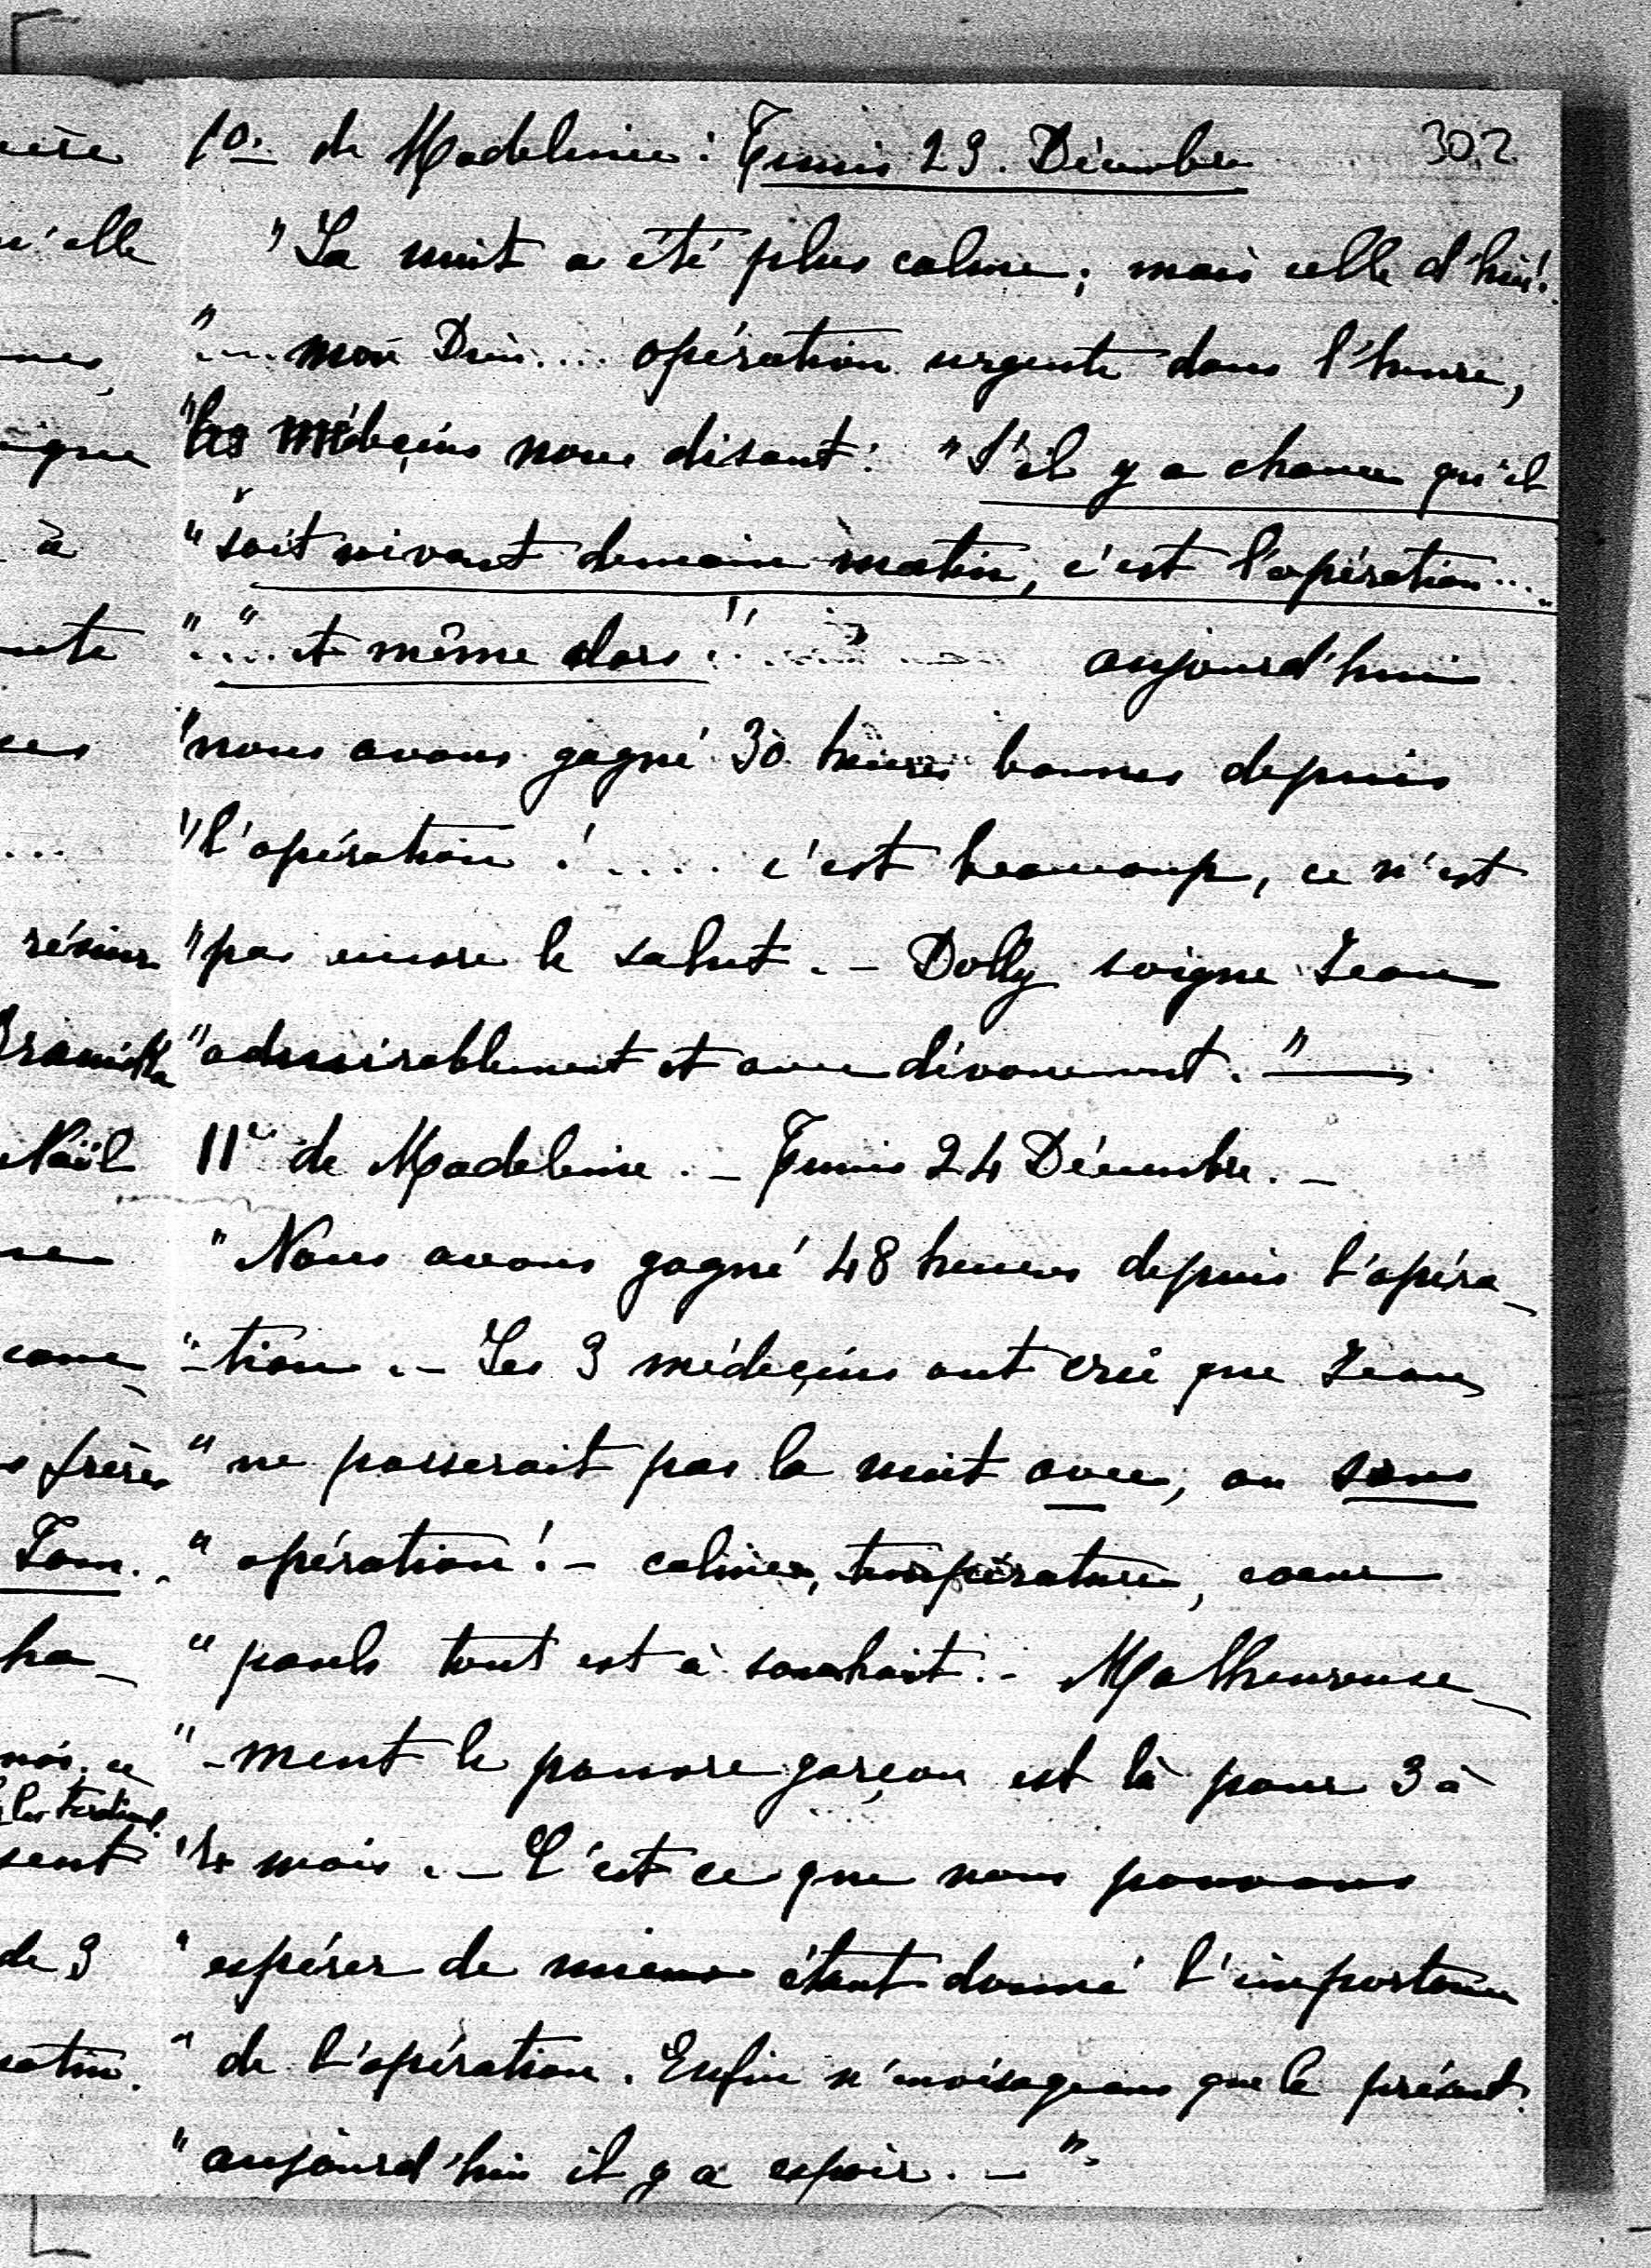 302
1º: de Madeleine: Tunis 23. Décembre
"La nuit a été plus calme; mais celle d'hier!.
"... mon Dieu.... opération urgente dans l'heure,
"les médeçins nous disant: "S'il y a chance qu'il
"soit vivant demain matin, c'est l'opération....
"...."et même alors!.... aujourd'hui
"nous avons gagné 30 heures bonnes depuis
"l'opération!.... c'est beaucoup, ce n'est
"pas encore le salut. - Dolly soigne Jean
"admirablement et avec dévouement." —
11e de Madeleine. - Tunis 24 Décembre. -
"Nous avons gagné 48 heures depuis l'opéra-
"-tion. - Les 3 médeçins ont crû que Jean
"ne passerait pas la nuit avec, ou sans
"opération! - calme, température, coeur
"pouls tout est à souhait. - Malheureuse-
"-ment le pauvre garçon est là pour 3 à
"4 mois. - C'est ce que nous pouvons
"espérer de mieux étant donné l'importance
"de l'opération. Enfin n'envisageons que le présent.
"aujourd'hui il y a espoir. - "